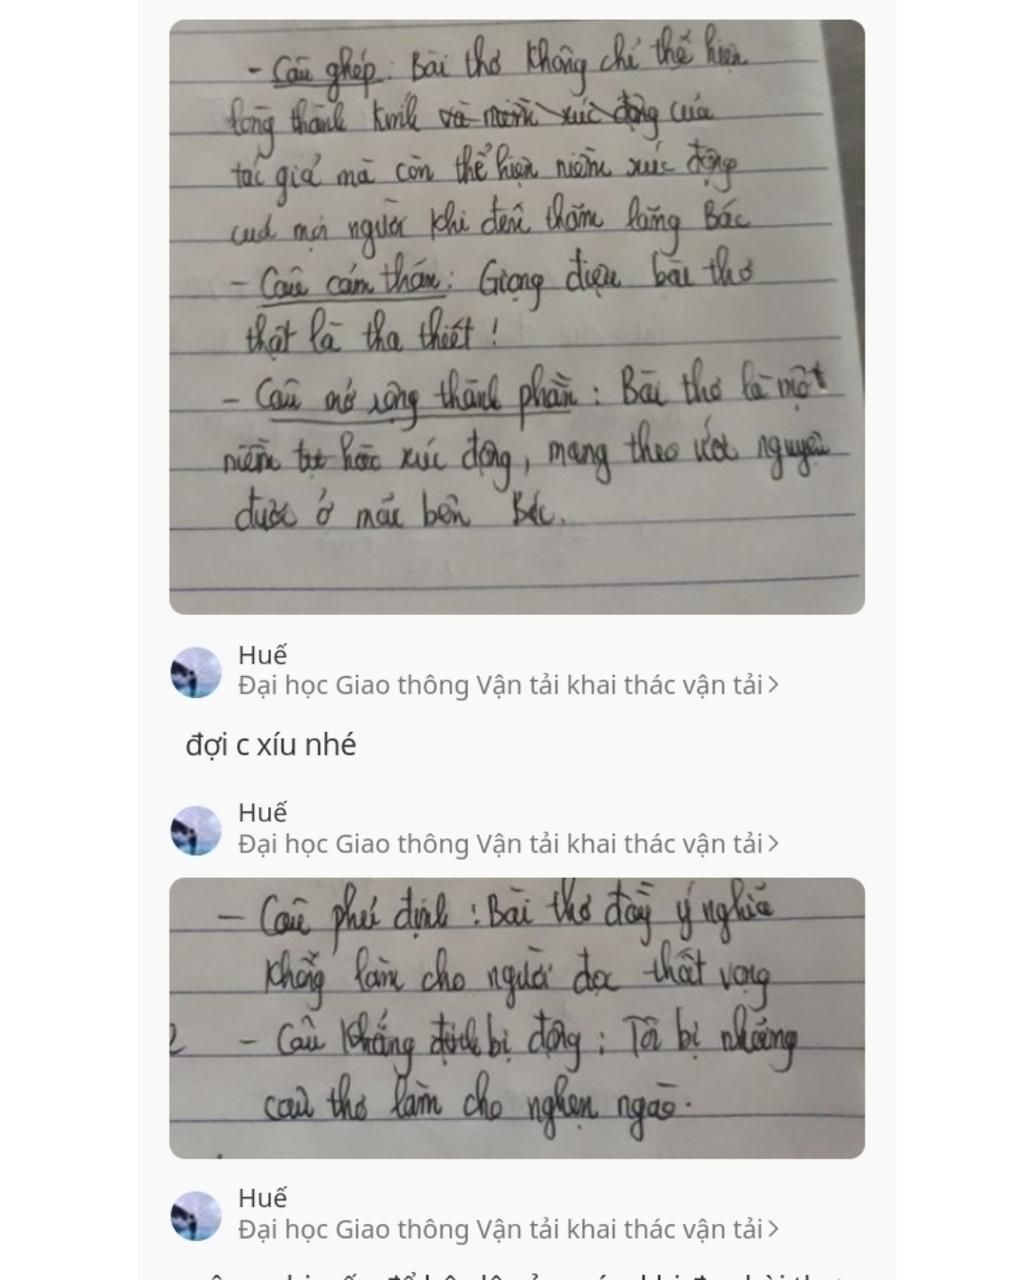 - Câu ghép: Bài thơ không chỉ thể hiện
lòng thành kính và niềm xúc động của
tác giả mà còn thể hiện niềm xúc động
của mọi người khi đến thăm lăng Bác
- Câu cảm thán: Giọng điệu bài thơ
thật là tha thiết !
- Câu mở rộng thành phần : Bài thơ là một
niềm tự hào xúc động, mang theo ước nguyện
được ở mãi bên Bác.
Huế
Đại học Giao thông Vận tải khai thác vận tải>
đợi c xíu nhé
Huế
Đại học Giao thông Vận tải khai thác vận tải>
- Câu phủ định : Bài thơ đầy ý nghĩa
không làm cho người đọc thất vọng
- Câu khẳng định bị động : Tôi bị những
câu thơ làm cho nghẹn ngào.
Huế
Đại học Giao thông Vận tải khai thác vận tải>